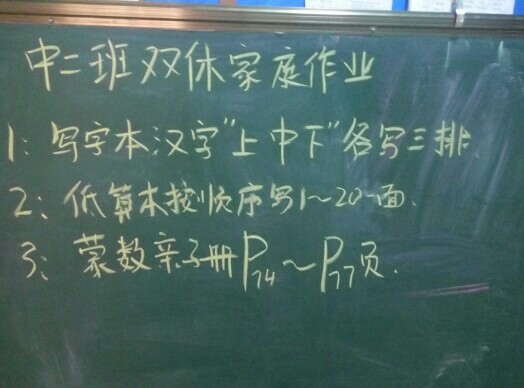 中二班双休家庭作业
1：写字本汉字"上中下"各写三排.
2：低算本按顺序写1~20一面.
3：蒙数亲子册P74~P77页.